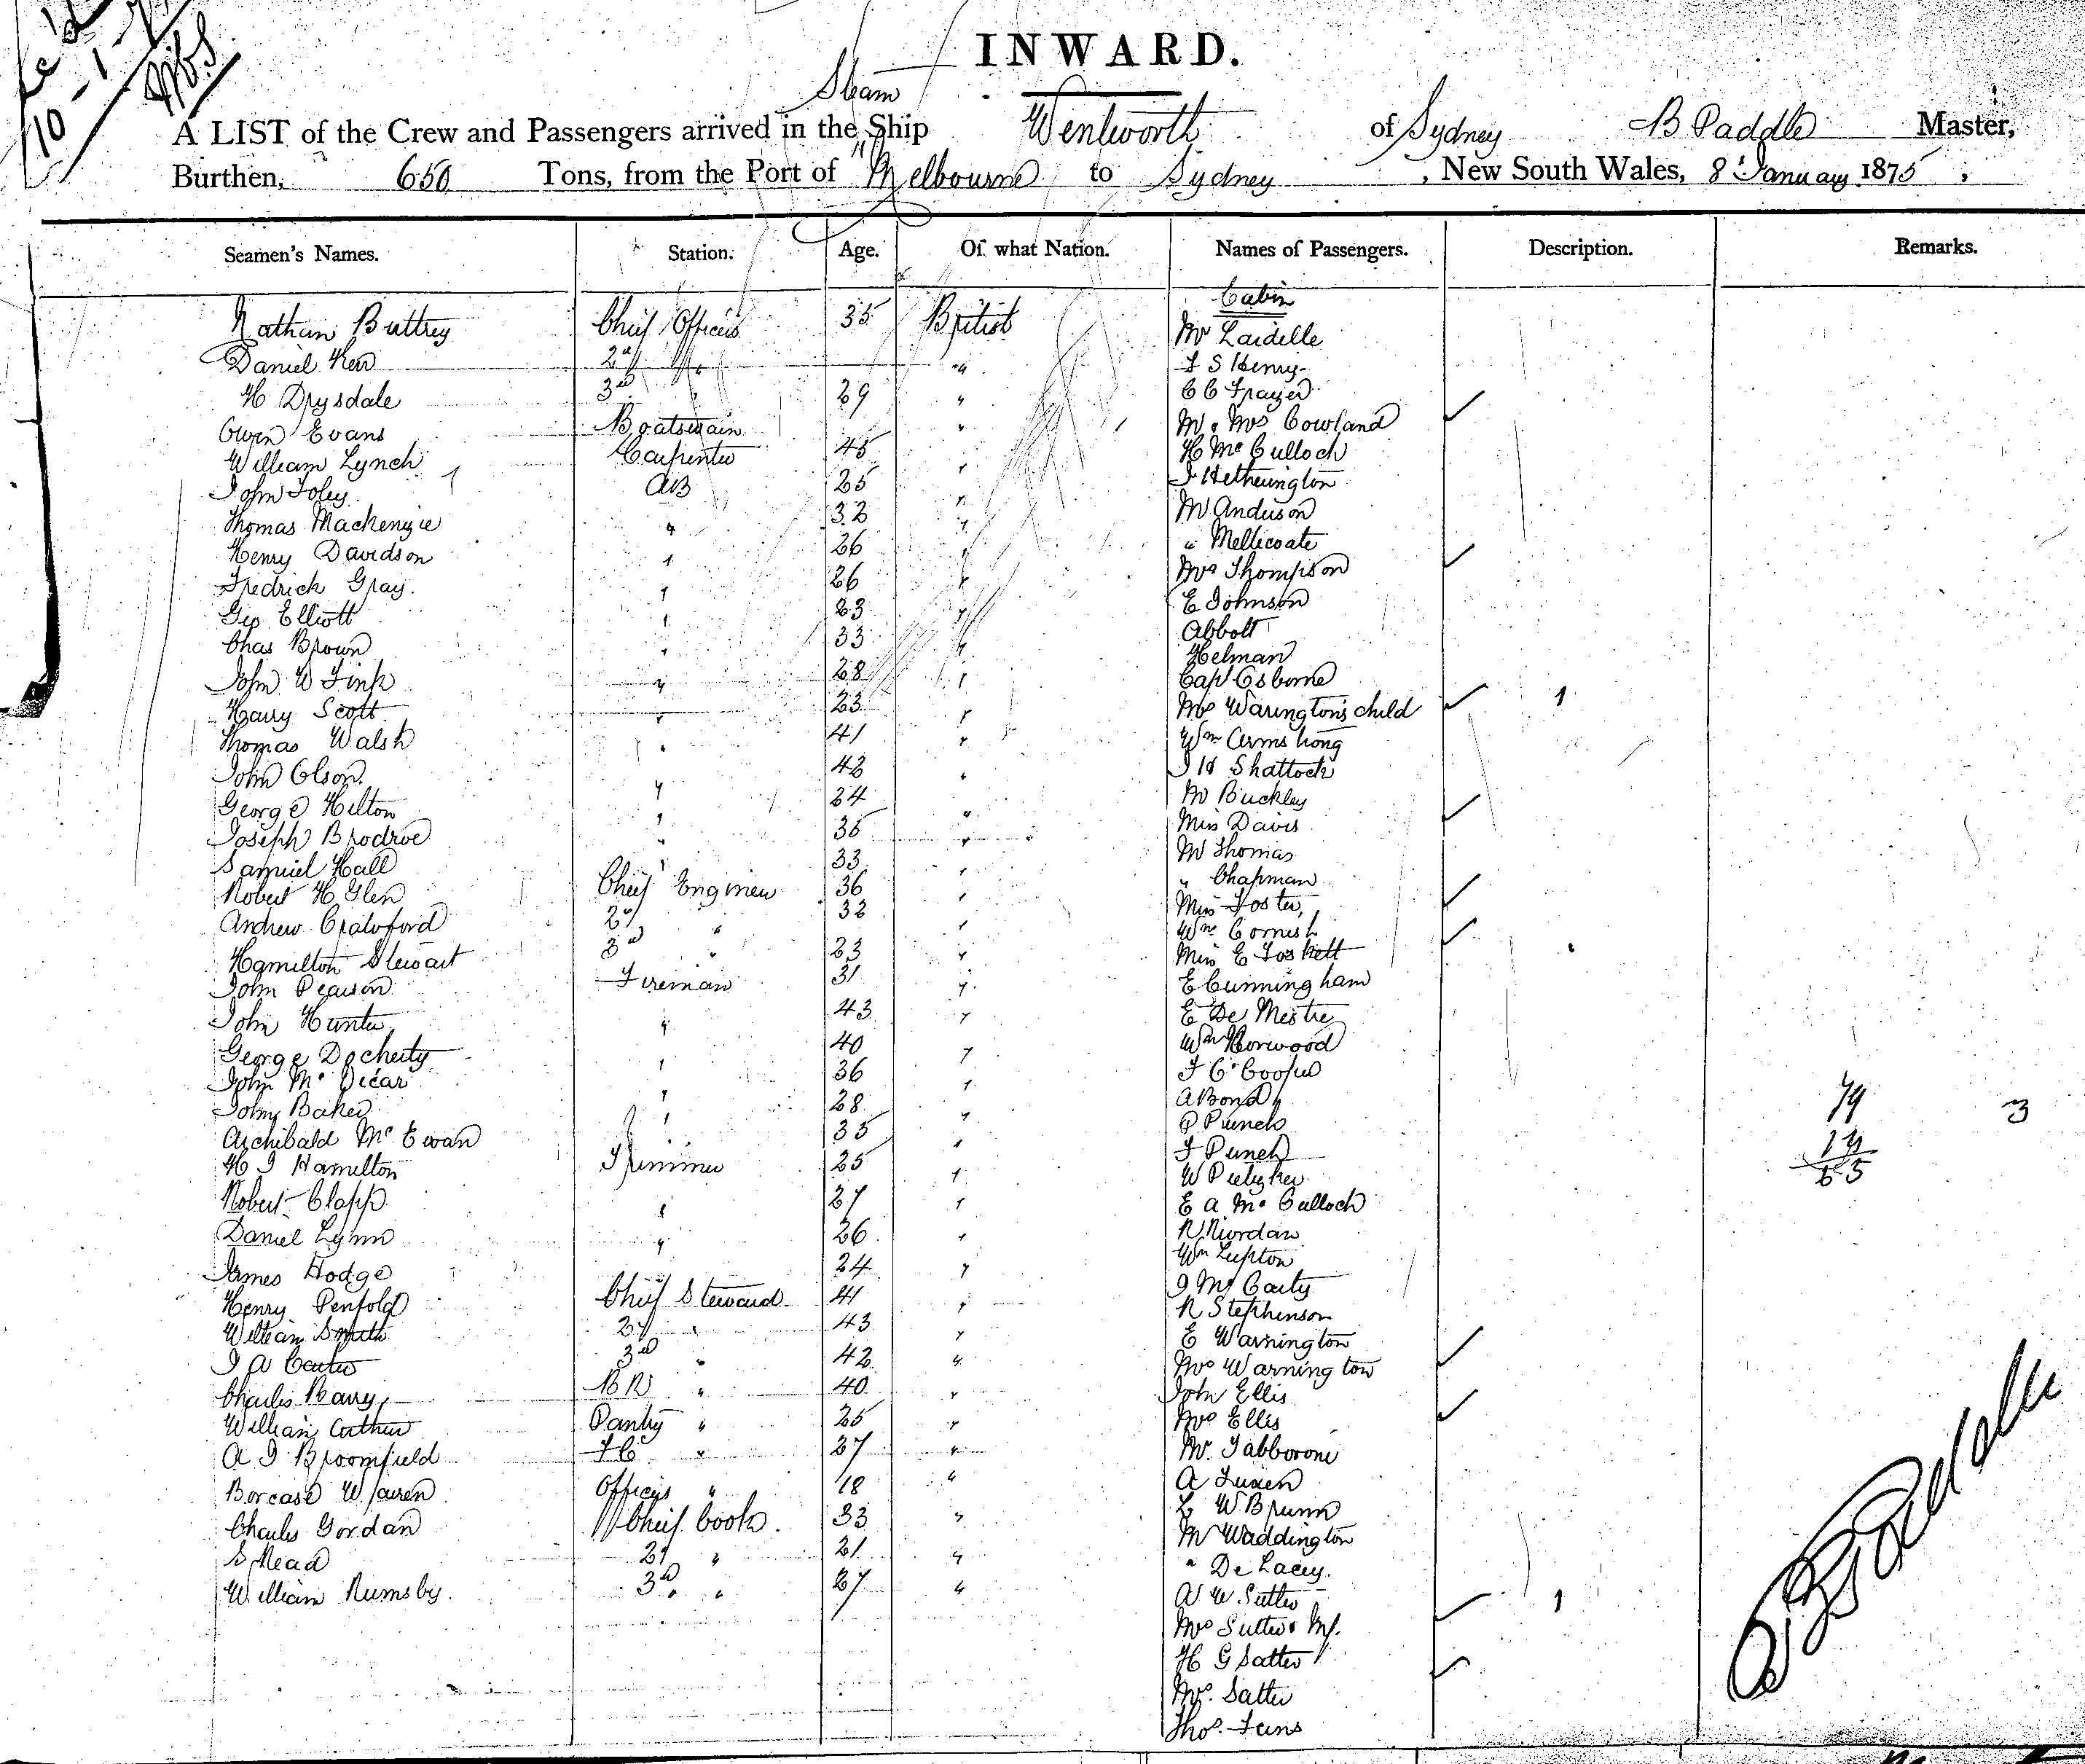 INWARD.
Steam
A LIST of the Crew and Passengers arrived in the Ship Wentworth of Sydney B Paddle Master,
Burthen, 650 Tons, from the Port of Melbourne to Sydney, New South Wales, 8 January 1875,
Seamen's Names. Station. Age. Of what Nation. Names of Passengers. Description. Remarks.
Cabin
Nathan Buttrey Chief Officer 35 British Mr Laidelle
Daniel Kerr 2nd " " F S Henry
H Drysdale 3rd 29 " C C Frazer
Owen Evans Boatswain " Mr & Mrs Cowland
William Lynch Carpenter 45 " H McCulloch
John Foley AB 25 " J Hetherington
Thomas Mackenzie " 32 " Mr Anderson
Henry Davidson " 26 " " Mellicoate
Fredrick Gray " 26 " Mrs Thompson
Geo Elliott " 23 " E Johnson
Chas Brown " 33 " Abbott
John W Fink " 28 " Helman
Harry Scott " 23 " Capt Osborne
Thomas Walsh " 41 " Mrs Warington's child 1
John Olson " 42 " Wm Armstrong
George Hilton " 24 " J H Shattock
Joseph Brodroe " 35 " Mr Buckley
Samuel Hall " 33 " Miss Davis
Robert H Glen Chief Engineer 36 " Mr Thomas
Andrew Crawford 2nd " 32 " " Chapman
Hamilton Stewart 3rd " 23 " Miss Foster
John Pearson Fireman 31 " Wm Cornish
John Hunter " 43 " Miss E Foskett
George Docherty " 40 " E Cunningham
John McVicar " 36 " E De Mestre
John Baker " 28 " Wm Horwood
Archibald McEwan " 35 " J C Cooper
H J Hamilton Trimmer 25 " A Bond
Robert Clapp " 27 " P Punch
Daniel Lynn " 26 " J Punch
James Hodge " 24 " W
Henry Penfold Chief Steward 41 " E A McCulloch
William Smith 2nd " 43 " R Riordan
J A Carter 3rd " 42 " Wm Lupton
Charles Barry BR " 40 " J McCarty
William Arthur Pantry " 25 " R Stephenson
A J Broomfield FC " 27 " E Warnington
Borcase Warren Officers " 18 " Mrs Warnington
Charles Gordan Chief Cook 33 " John Ellis
S Mead 2nd " 21 " Mrs Ellis
William Rumsby 3rd " 27 "
A Luxen
L W Brunn
Mr Waddington
" De Lacey
A W Sutter
Mrs Sutter 1
H G Satter
Mrs Satter
Thos
79
14
65
3
B Paddle